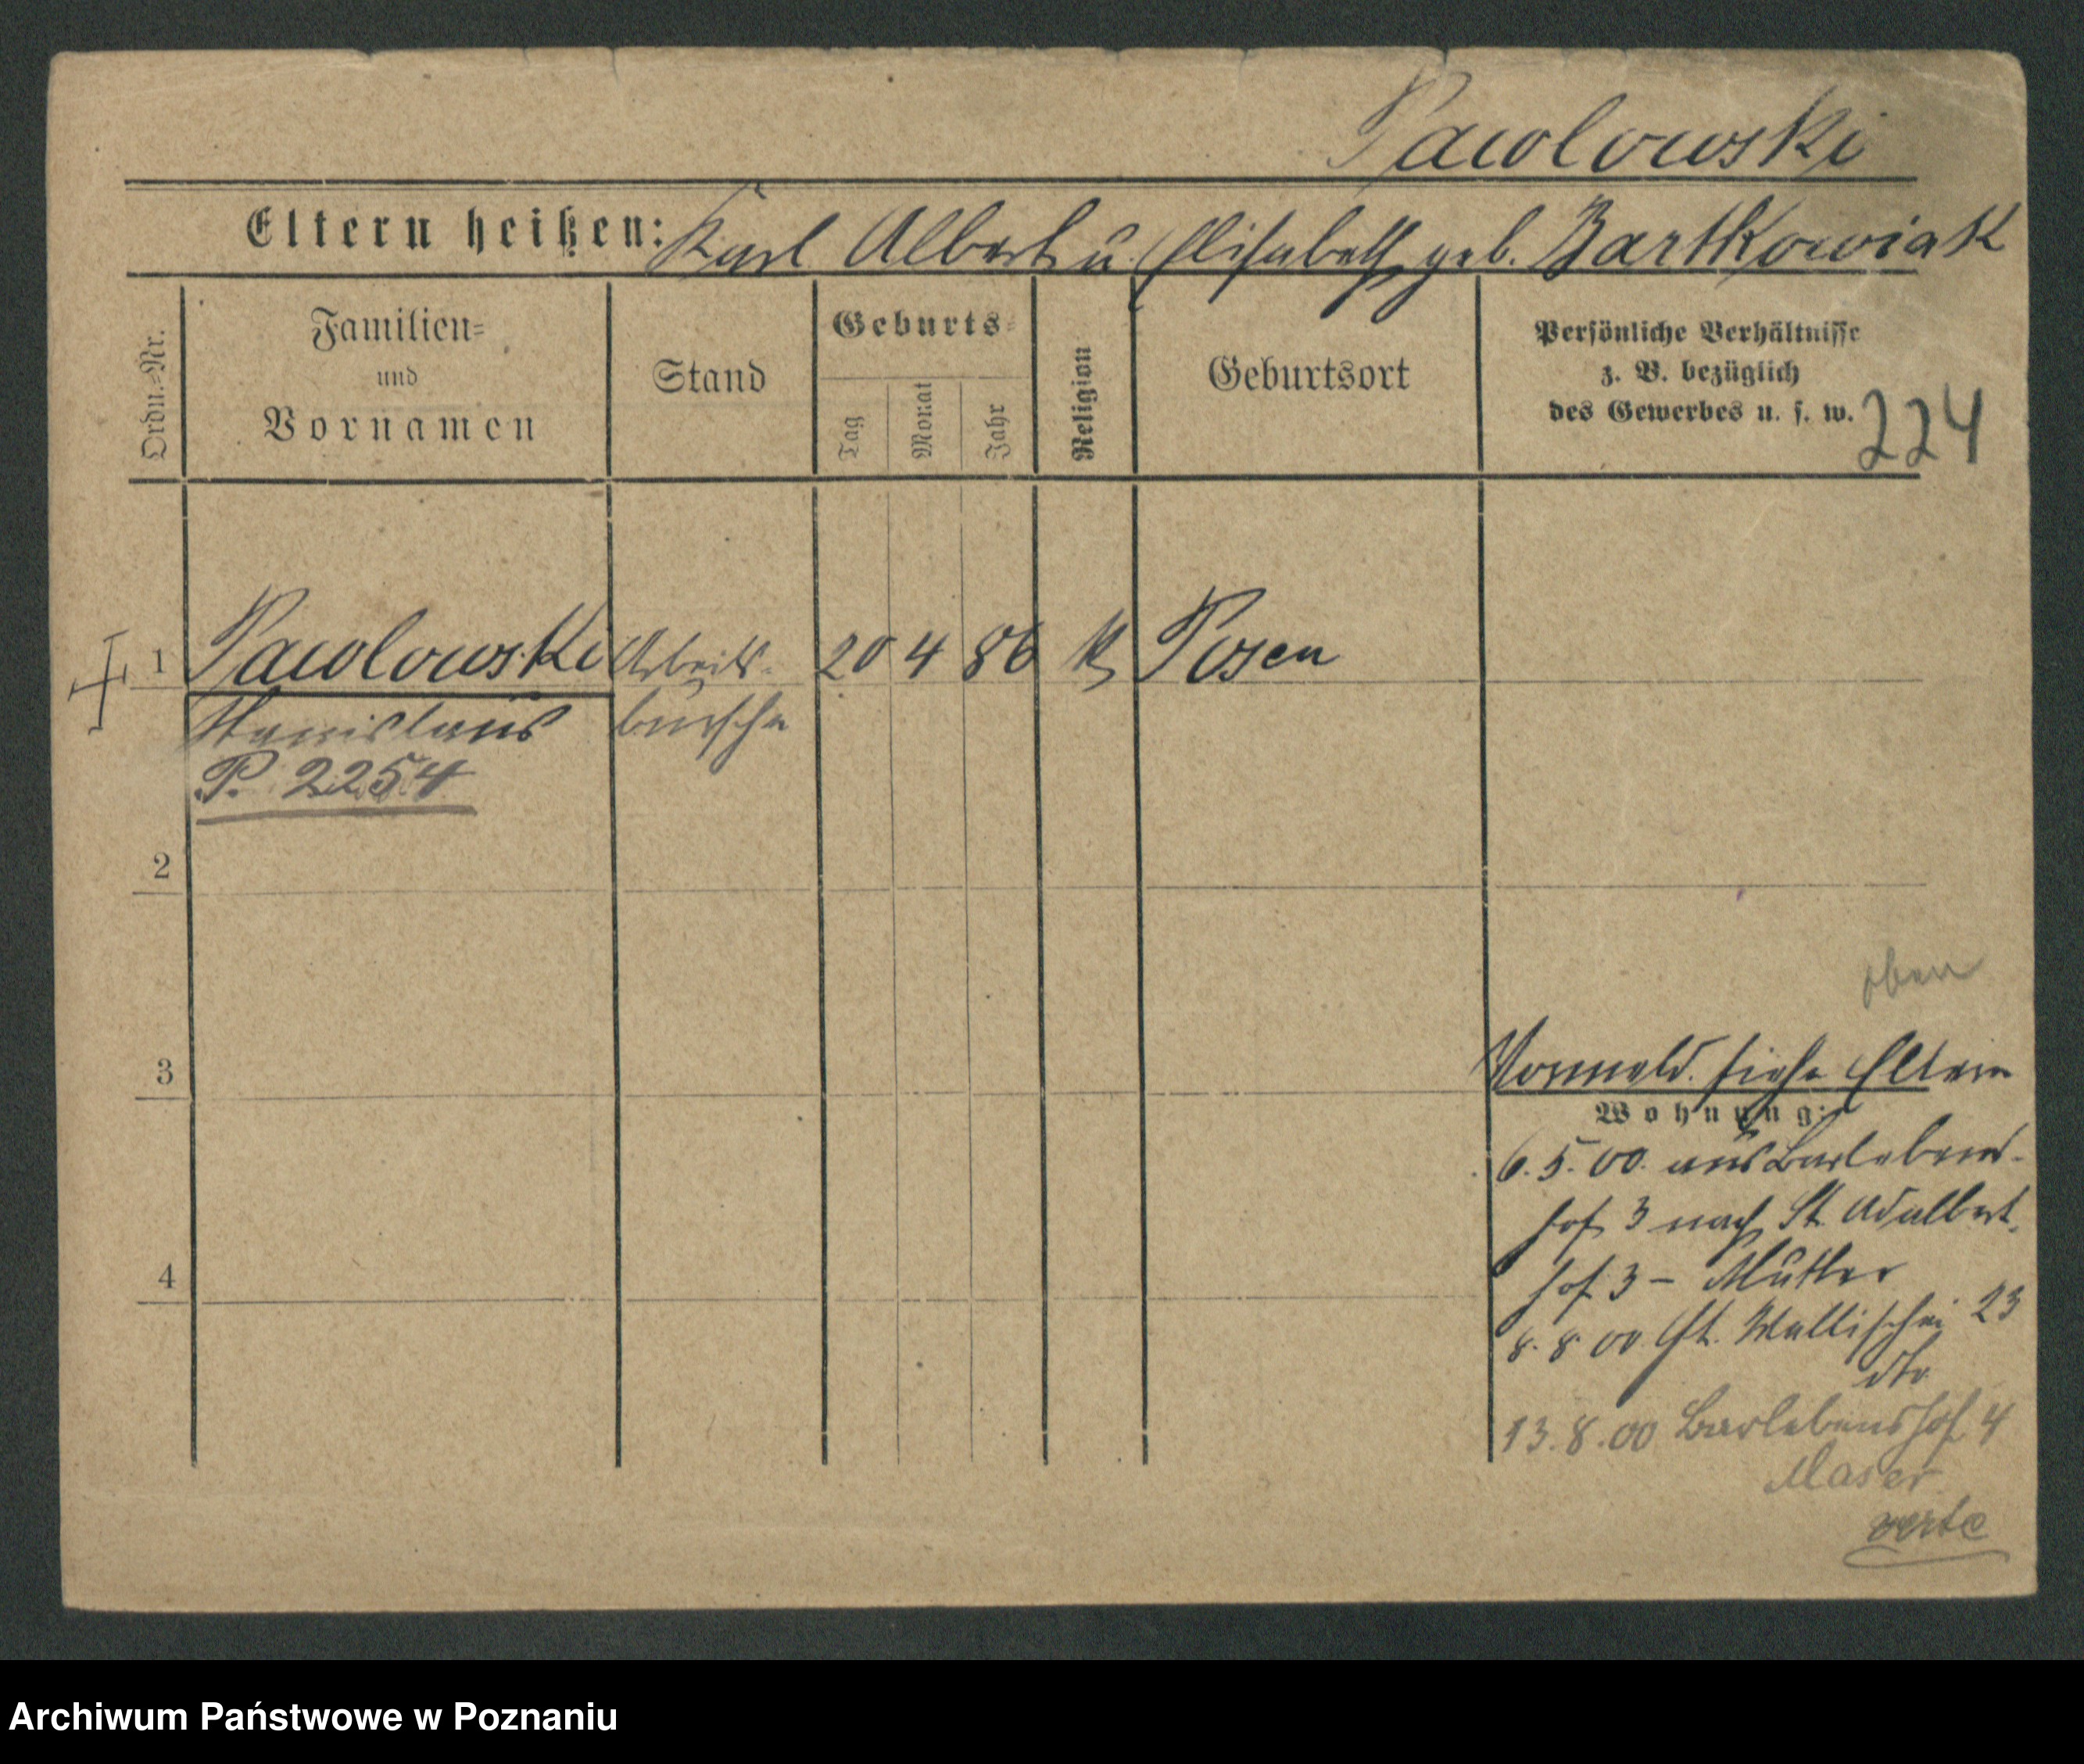 Pawlowski
Eltern heißen: Karl Albert u. Elisabeth geb. Bartkowiak
Ordn.-Nr.
Familien-
und
Vornamen
Stand
Geburts-
Tag
Monat
Jahr
Religion
Geburtsort
Persönliche Verhältnisse
z. B. bezüglich
des Gewerbes u. s. w.
224
1 Pawlowski Arbeits- 20 4 86 K Posen
Stanislaus bursche
P. 2254
2
oben
3
Vormeld. siehe Eltern
Wohnung:
6.5.00. aus Barlebens-
hof 3 nach St. Adalbert-
4
hof 3 – Mutter
8.8.00. Wallischei 23
dto
13.8.00 Barlebenshof 4
Maser
verte
Archiwum Państwowe w Poznaniu